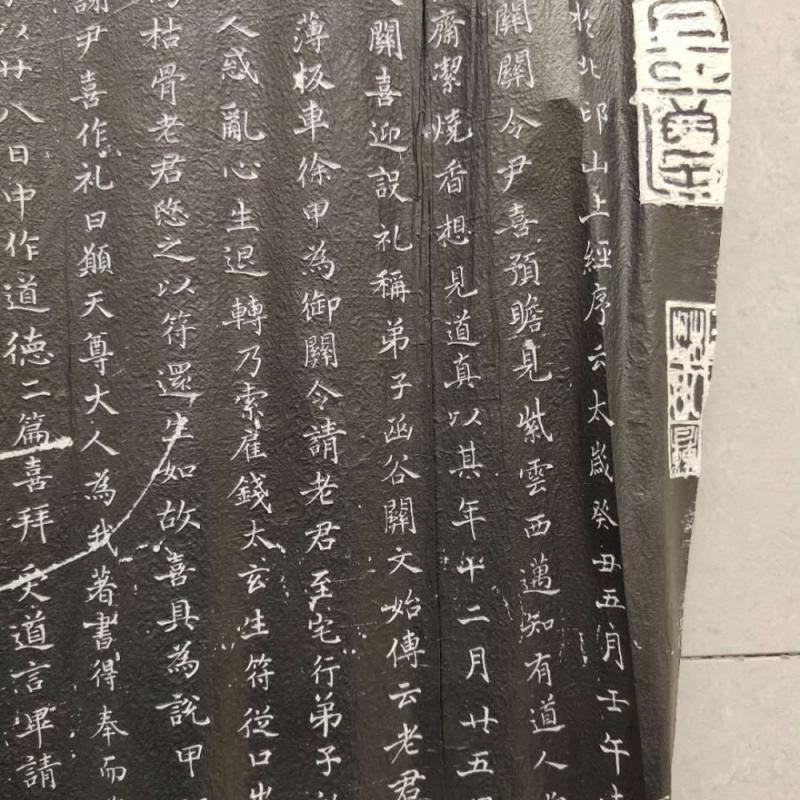 於北邙山上經序云太歲癸丑五月壬午
關關令尹喜預瞻見紫雲西邁知有道人
齋潔燒香想見道真以其年十二月廿五
關喜迎設礼稱弟子函谷關文始傳云老君
薄板車徐甲為御關令請老君至宅行弟子
人惑亂心生退轉乃索雇錢太玄生符從口出
為枯骨老君愍之以符還生如故喜具為說甲
謝尹喜作礼曰願天尊大人為我著書得奉而
以廿八日中作道德二篇喜拜受道言畢請